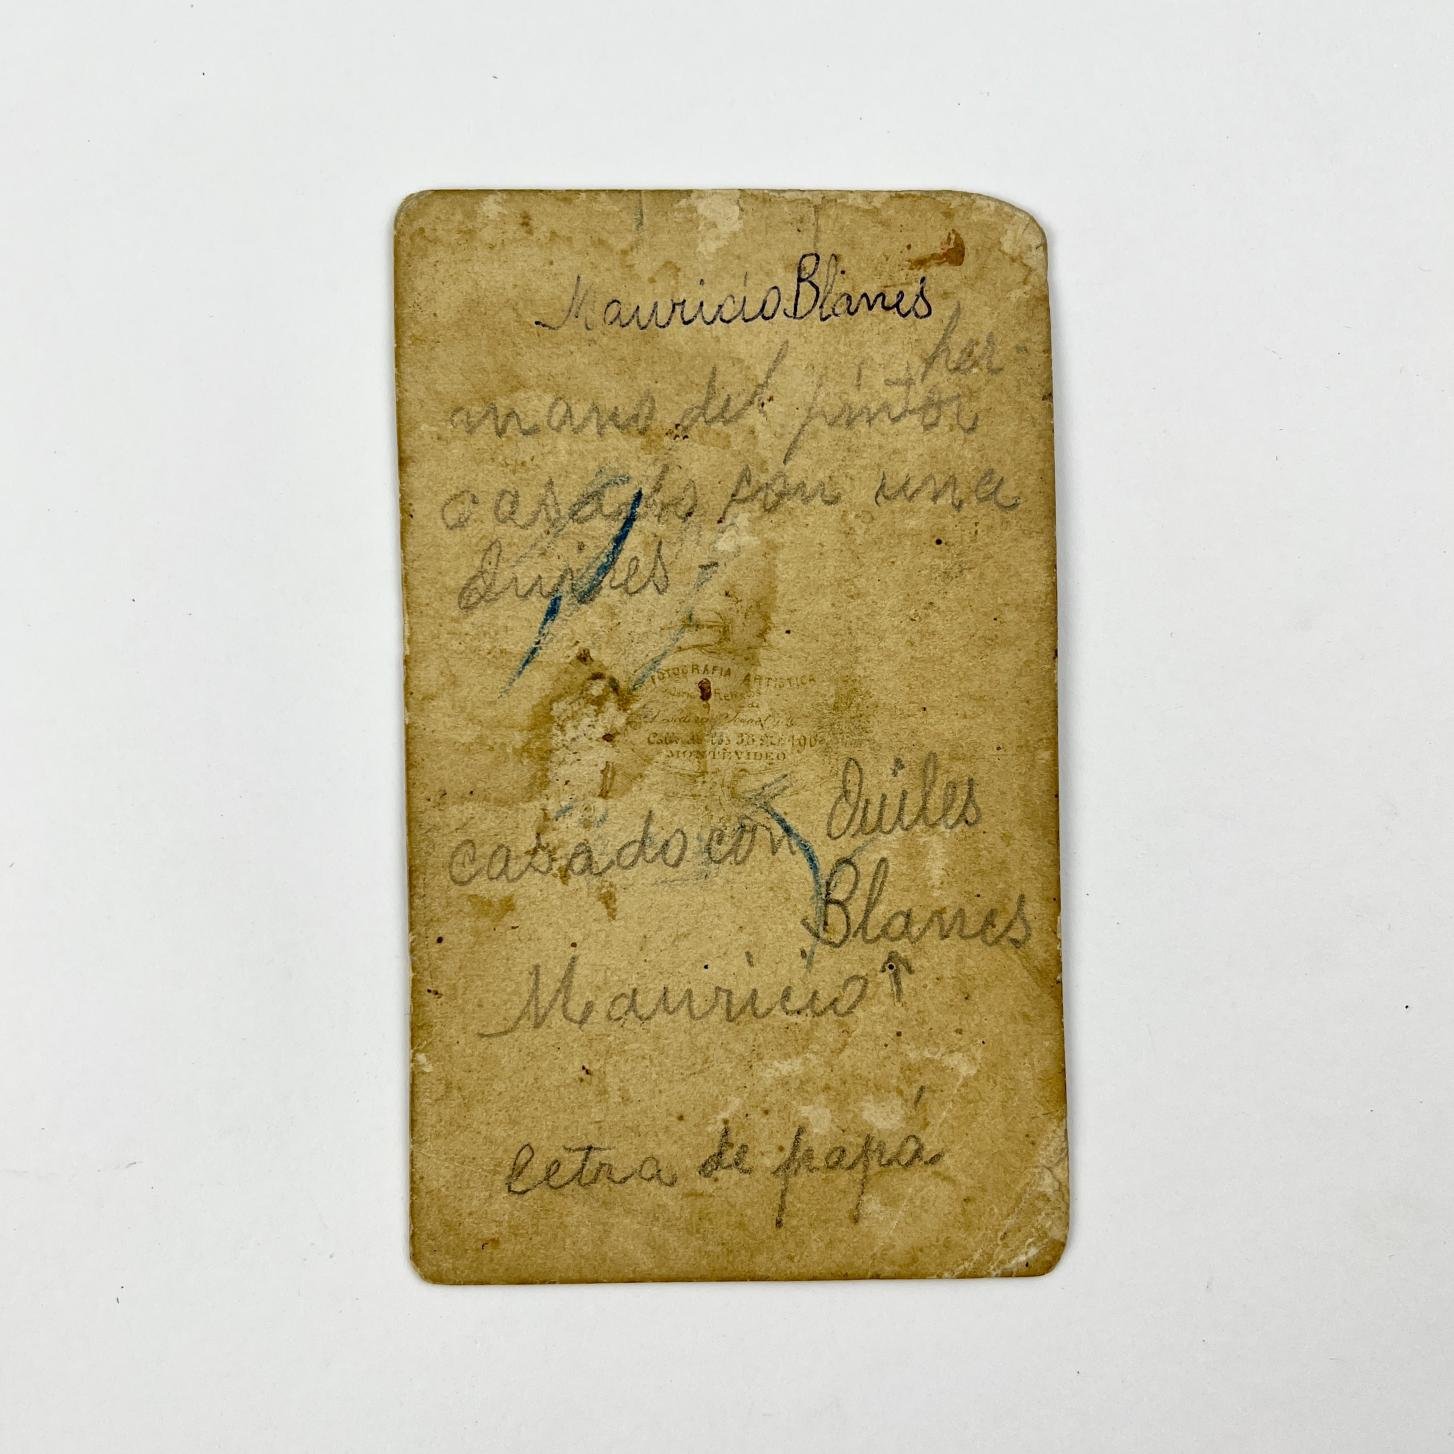 Mauricio Blanes
her-
mano del pintor
casado con una
Quiles -
FOTOGRAFIA ARTISTICA
Calle de los 33 No. 100
MONTEVIDEO
casado con Quiles
Blanes
Mauricio ↑
letra de papá